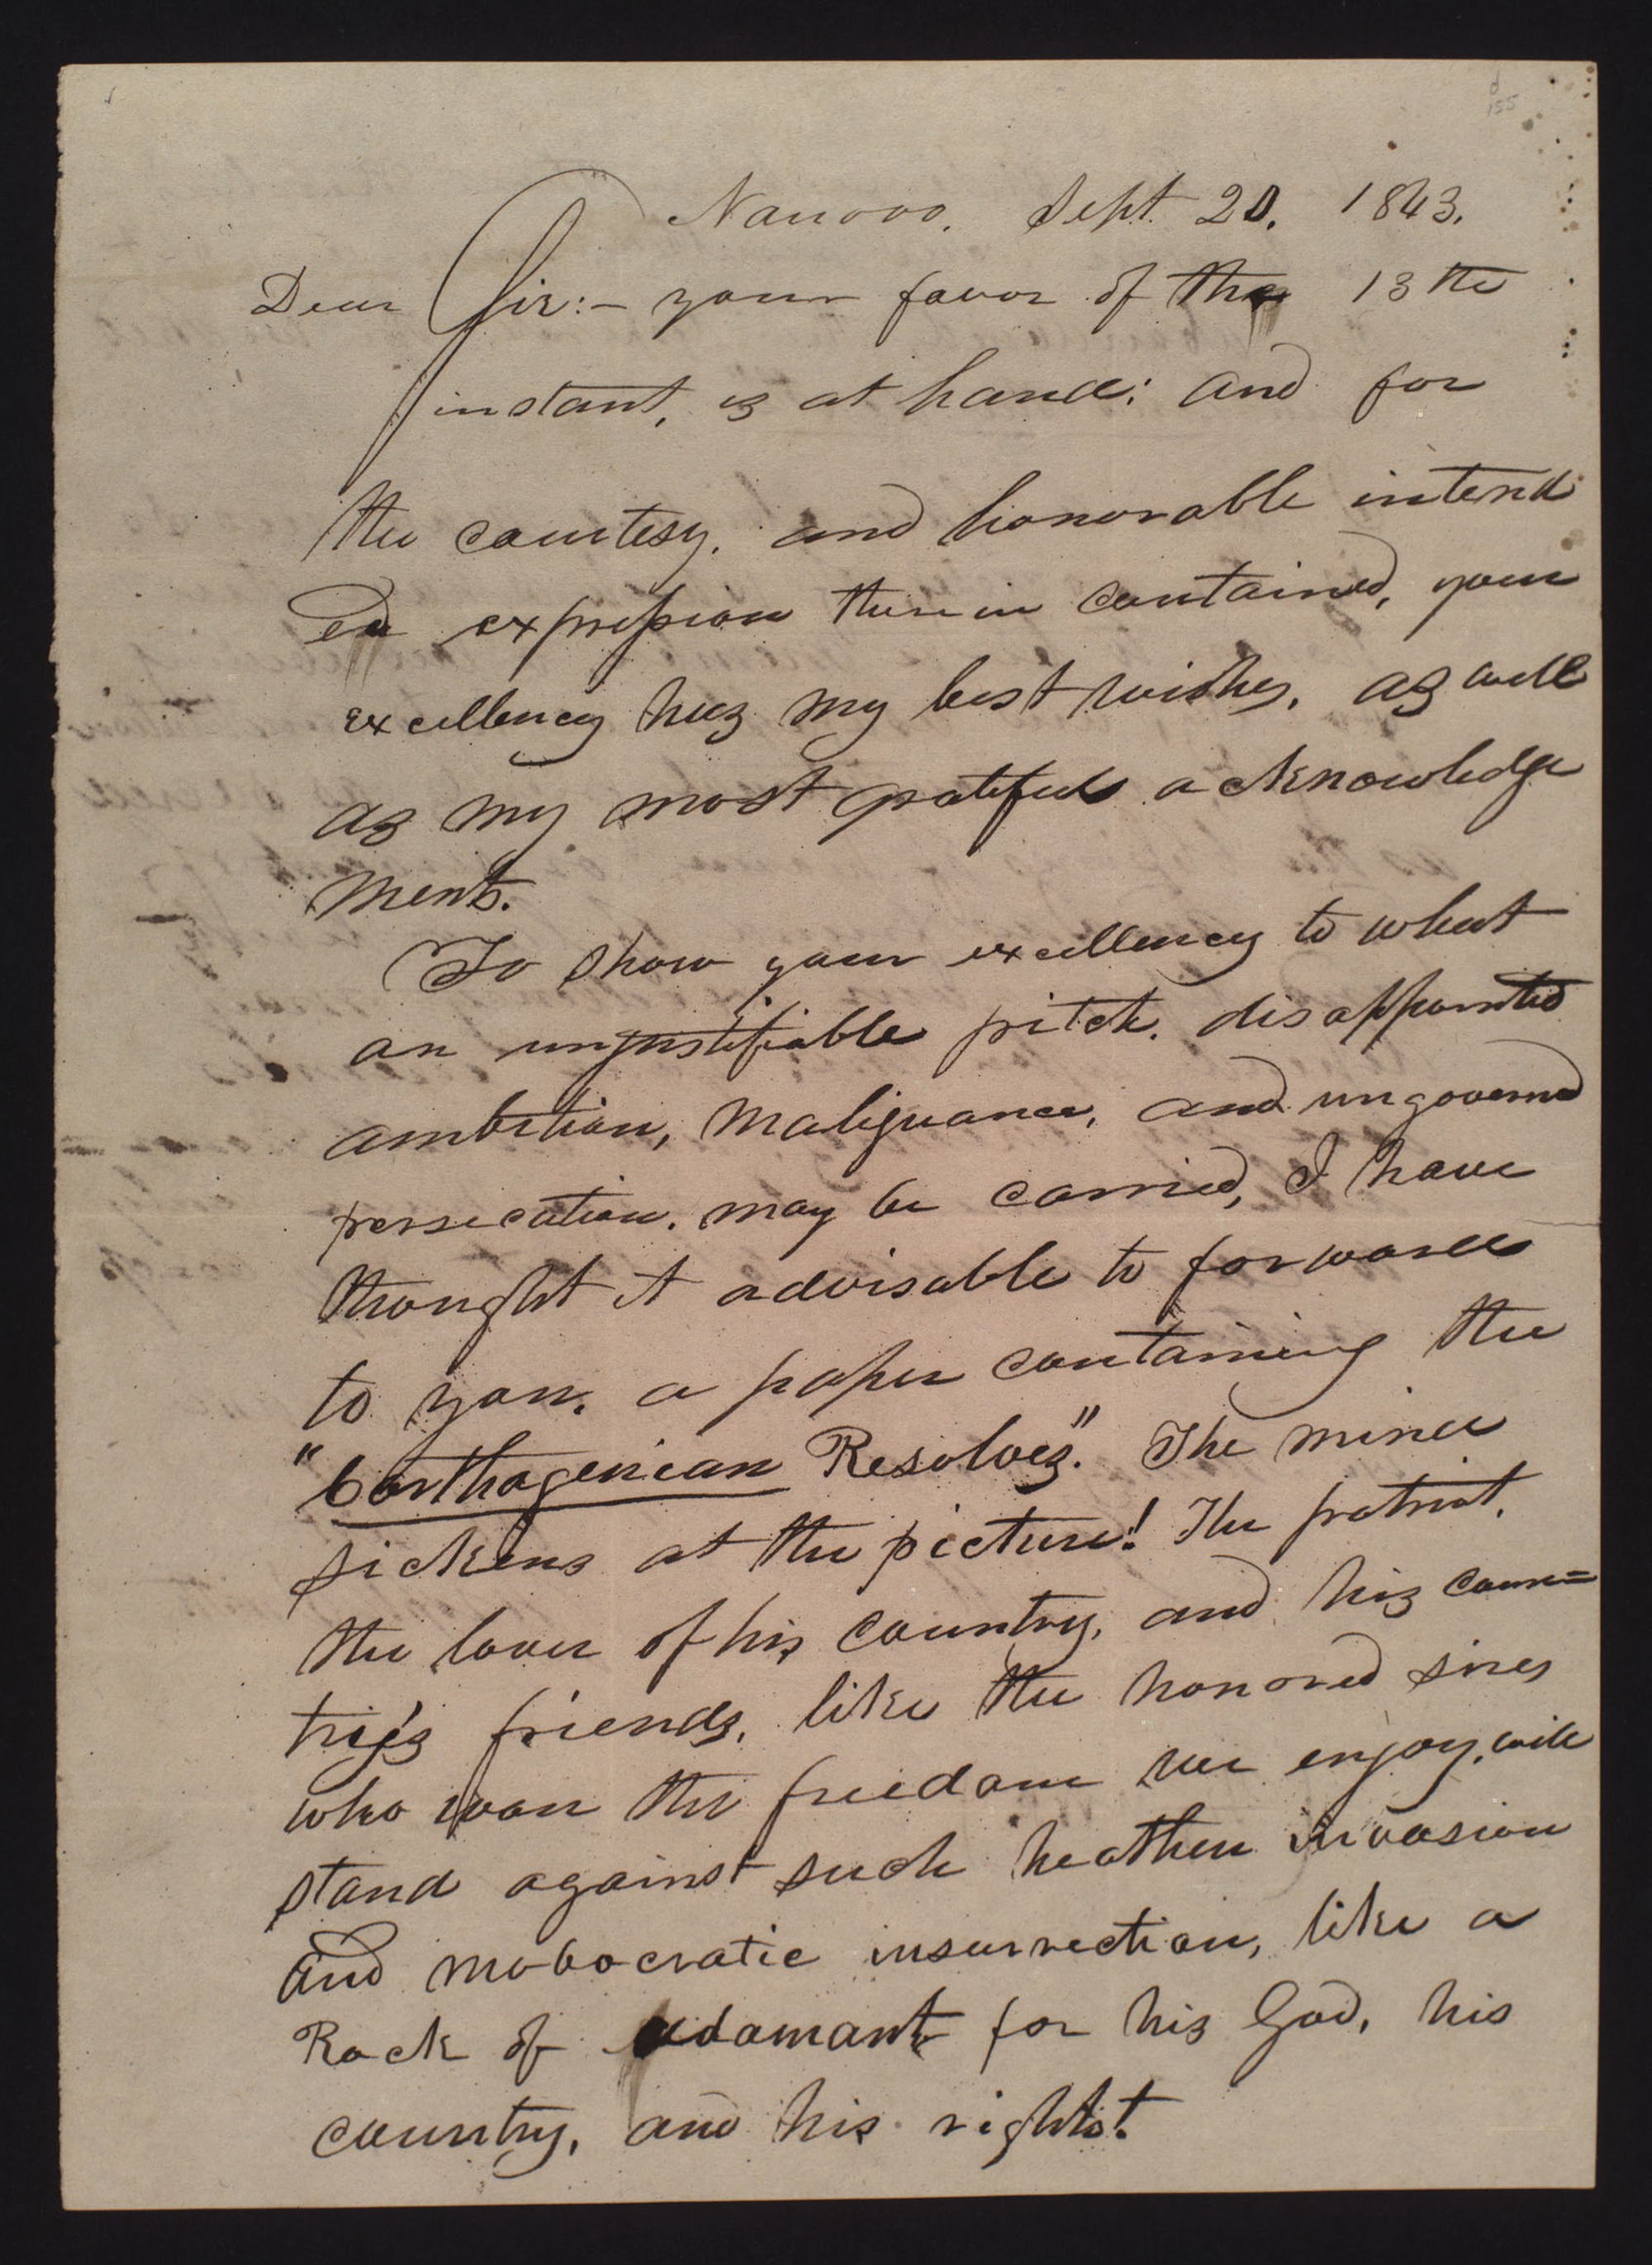 Nauvoo. Sept. 20. 1843.
Dear Sir:- your favor of the 13th
instant, is at hand: and for
the courtesy, and honorable intend
ed expression therein contained, your
excellency has my best wishes, as well
as my most gratefull acknowledge
ments.
To show your excellency to what
an unjustifiable pitch, disappointed
ambition, malignance, and ungoverned
persecution, may be carried, I have
thought it advisable to forward
to you, a paper containing the
"Carthagenican Resolves". The mind
sickens at the picture! The patriot,
the lover of his country, and his coun=
trie's friends, like the honored sires
who won the freedom we enjoy, will
stand against such heathen invasion
and mobocratic insurrection, like a
Rock of adamant for his God, his
country, and his rights!
155